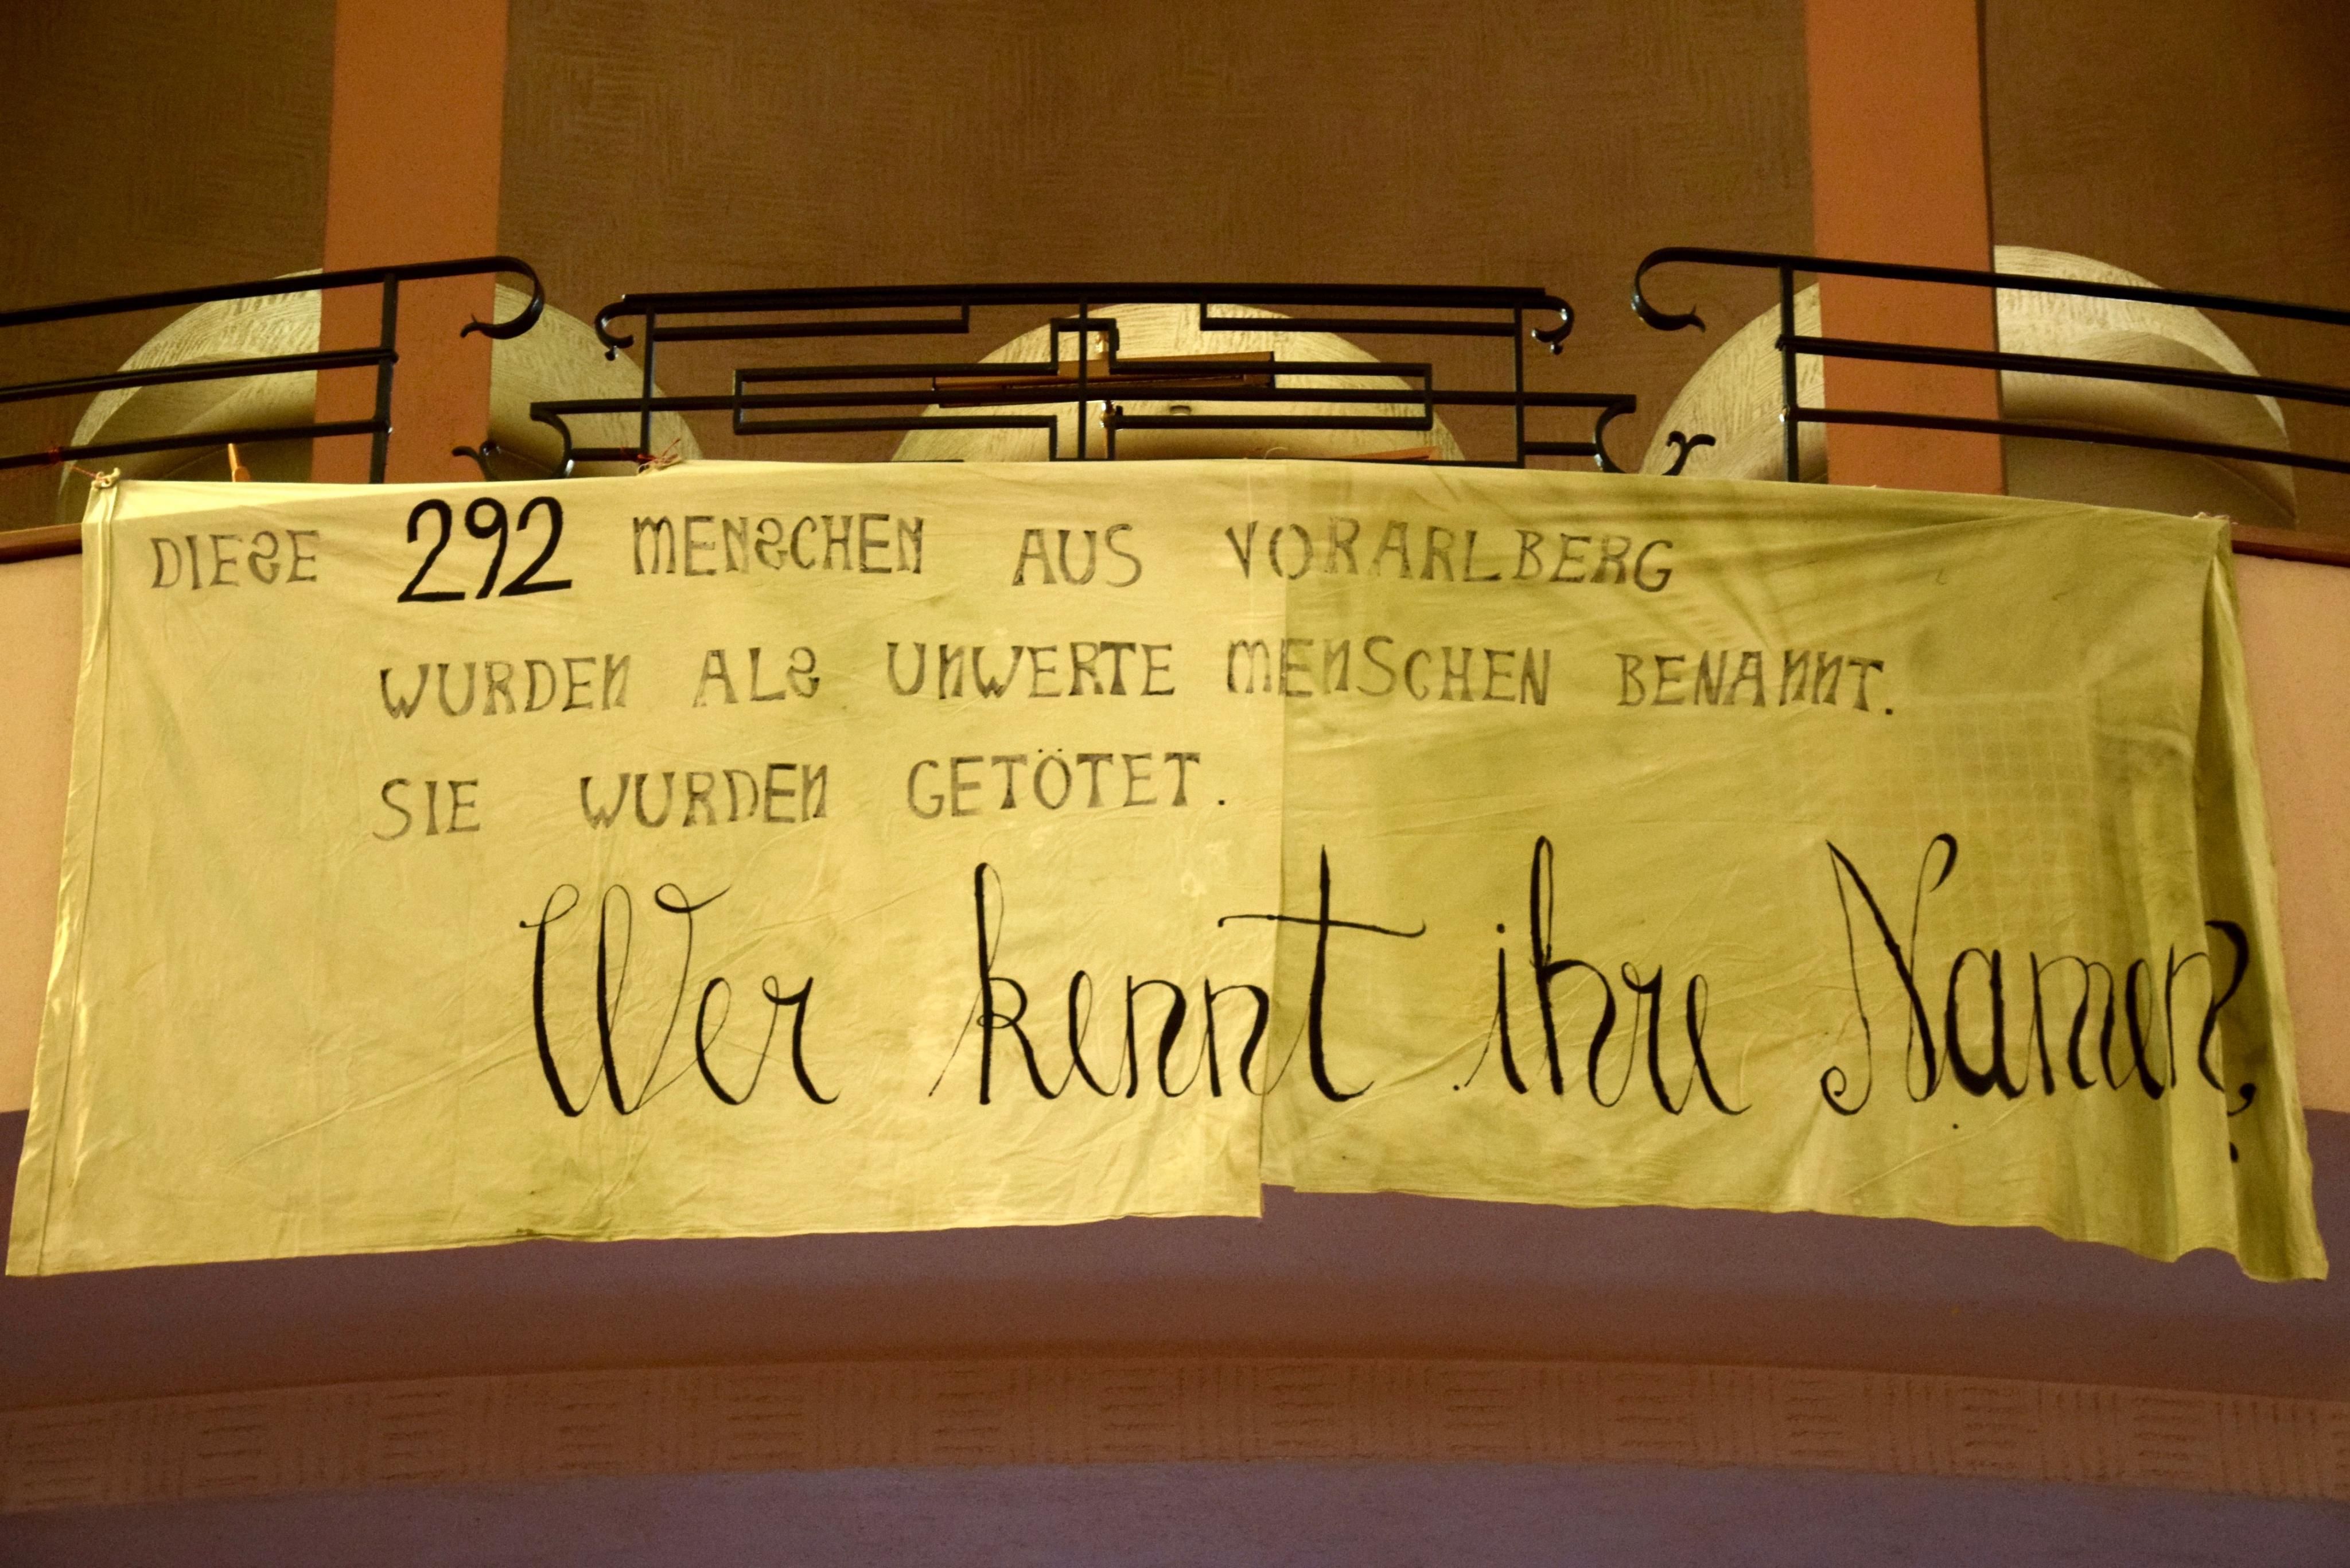 DIESE 292 MENSCHEN AUS VORARLBERG
WURDEN ALS UNWERTE MENSCHEN BENANNT.
SIE WURDEN GETÖTET.
Wer kennt ihre Namen?